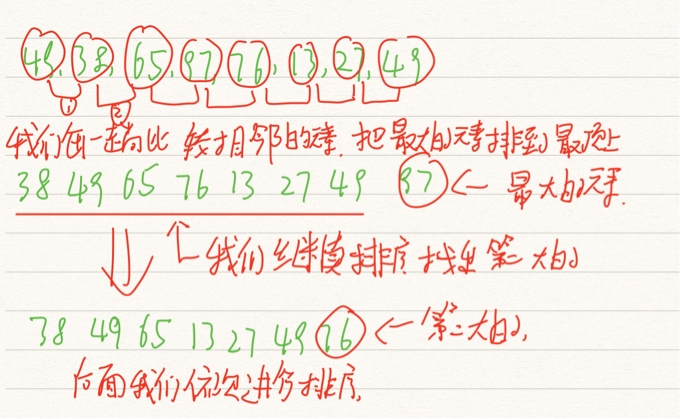 49, 38, 65, 97, 76, 13, 27, 49
① ②
我们每一趟向比较相邻的元素. 把最大的元素排到最顶上
38 49 65 76 13 27 49 97 ← 最大的元素.
我们继续排序找出第二大的
38 49 65 13 27 49 76 ← 第二大的,
后面我们依次进行排序,